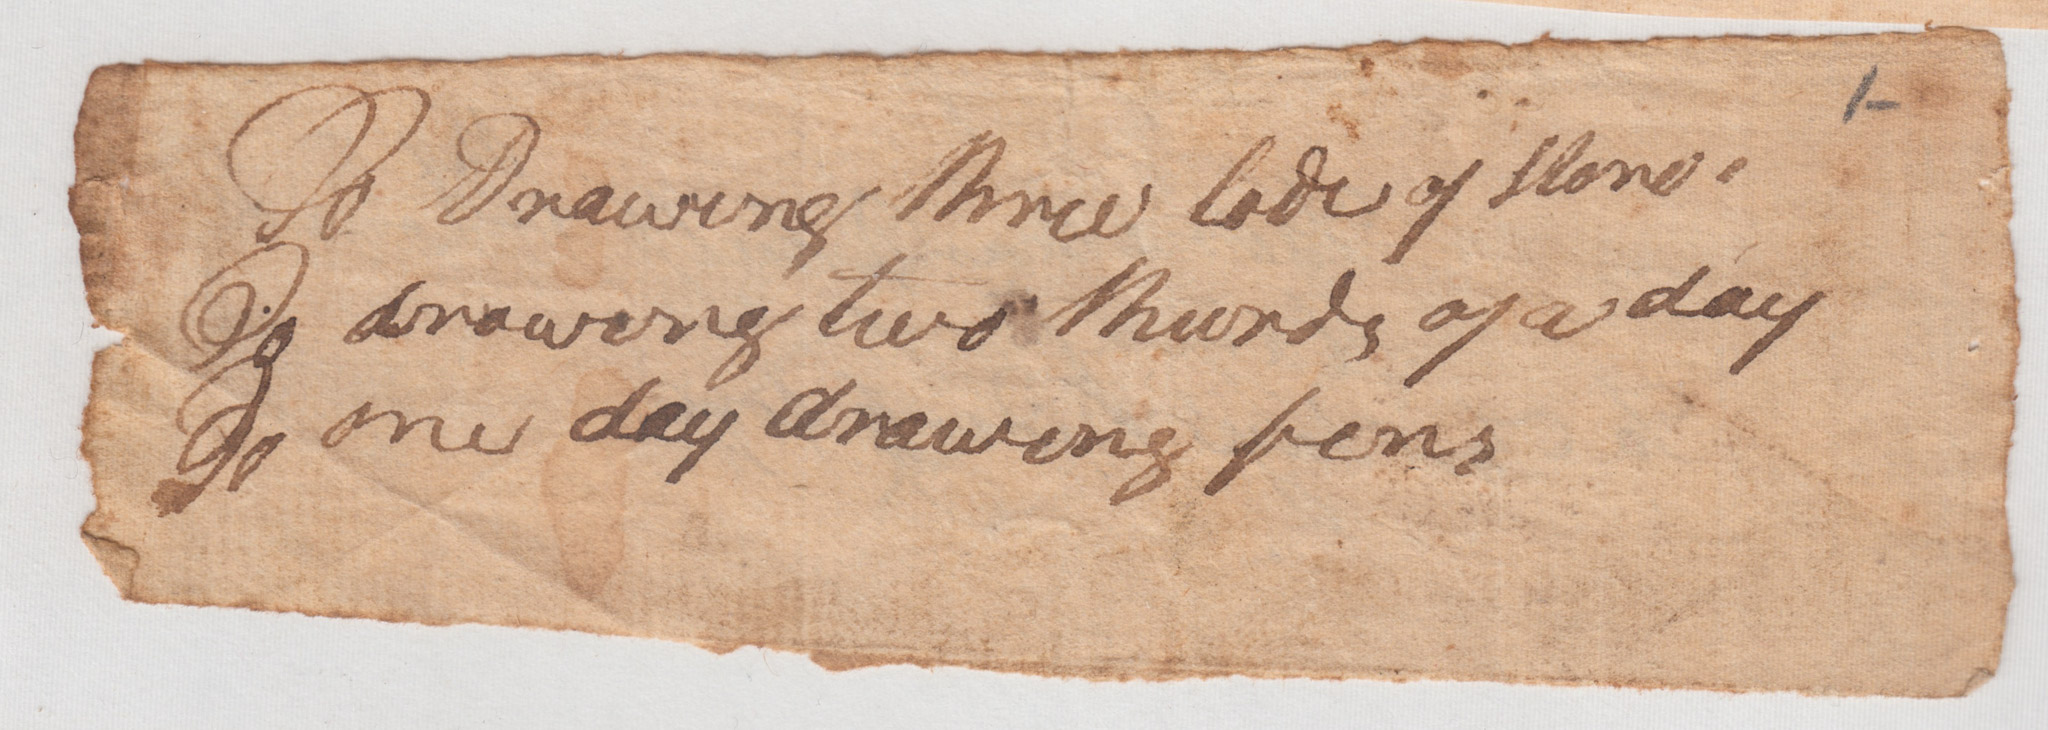 1-
To Drawing three lode of stone
To drawing two thurds of a day
To one day drawing